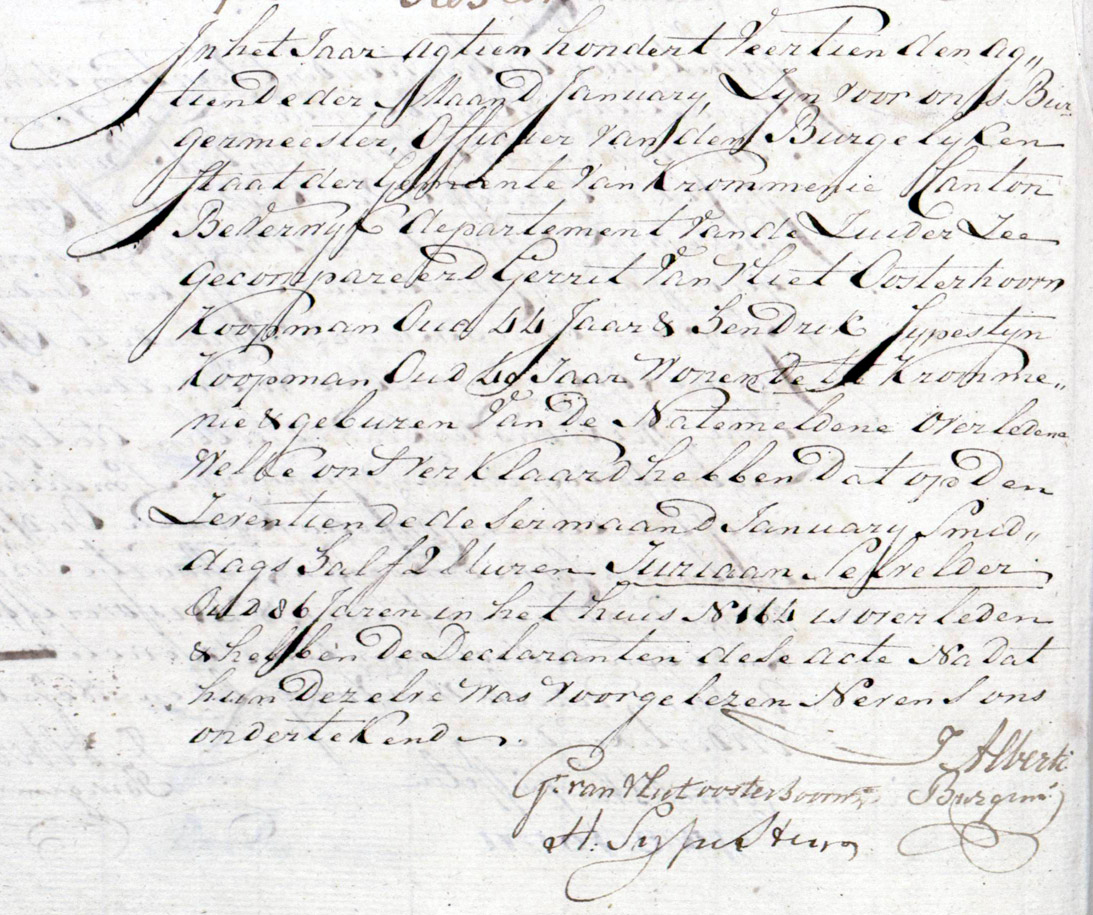 In het Jaar agtien hondert Veertien den ag„
tiende der Maand January, Zyn voor ons Bur
germeester, Officier van den Burgelyken
Staat der Gemeente van Krommenie Canton
Beverwyk departement van de Zuider Zee
gecompareerd Gerrit van Vliet Oosterhoorn
Koopman Oud 44 Jaar & Hendrik Sypesteyn
Koopman Oud Jaar Wonende te Kromme„
nie & geburen Van De Natemeldene overledene
Welke ons verklaard hebben Dat op Den
Zeventiende deser maand January Smid„
dags half 2 Uuren Juriaan Selvelder
Oud 86 Jaren in het huis N 164 is overleden
& hebben De Declaranten dese acte Na Dat
hun Dezelve Was Voorgelezen Nevens ons
ondertekend
J Alberti
Gt. van Vliet oosterhoorn Burgmr
H. Sypesteyn